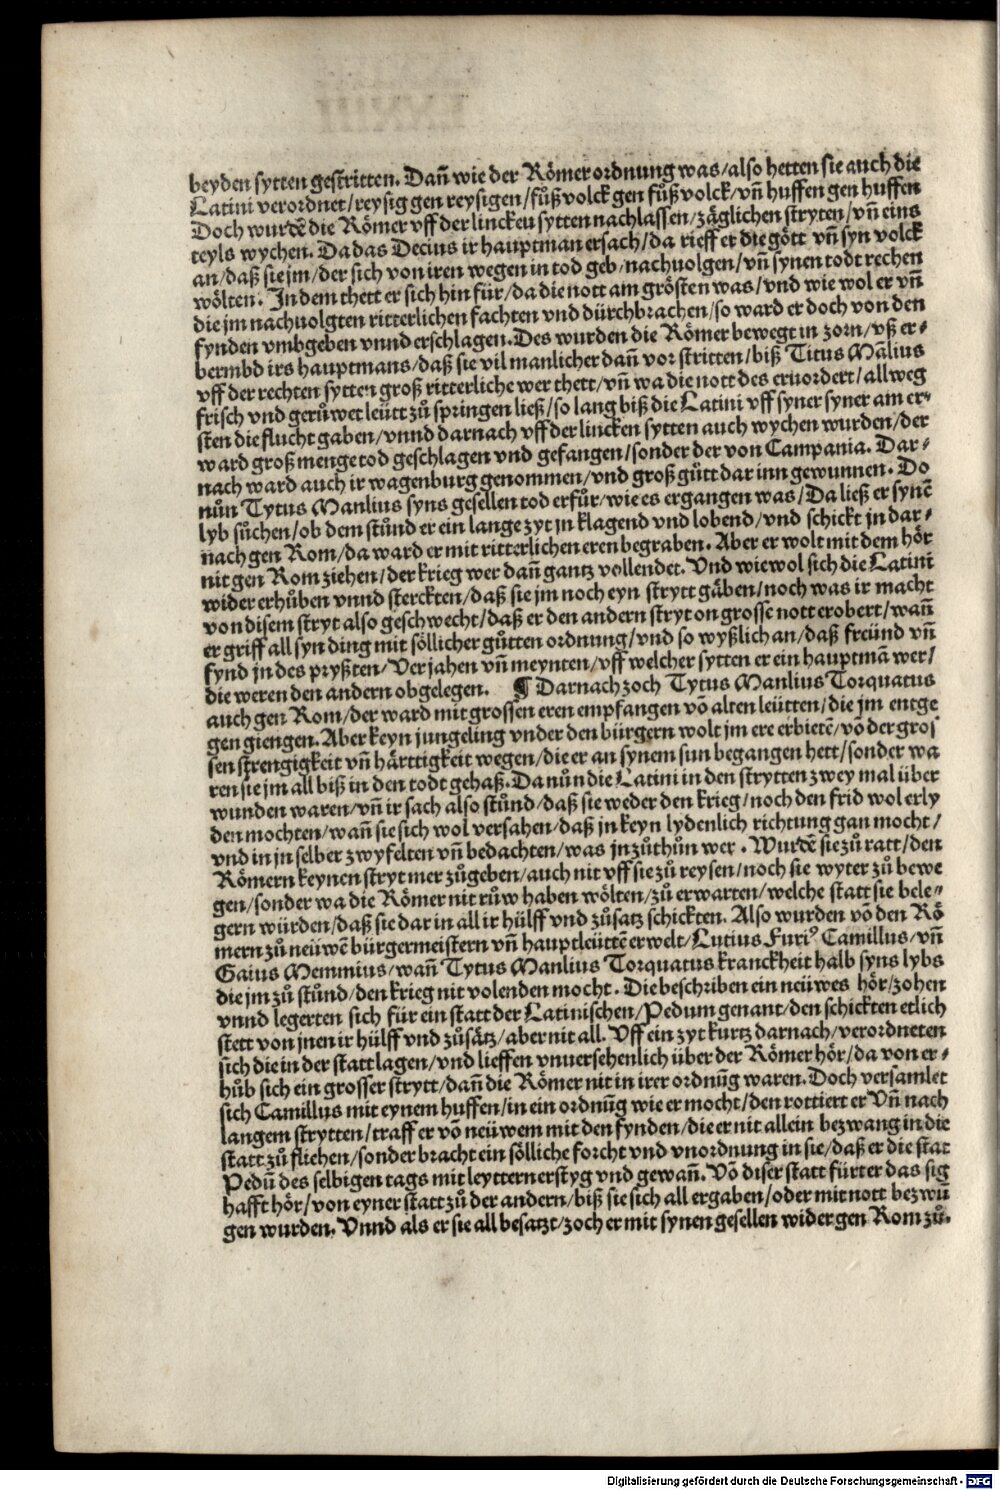 beyden sytten gestritten. Dañ wie der Römer ordnung was/also hetten sie auch die
Latini verordnet/reysig gen reysigen/fůßvolck gen fůßvolck/vñ huffen gen huffen
Doch wurdẽ die Römer vff der lincken sytten nachlassen/zäglichen stryten/vñ eins
teyls wychen. Da das Decius ir hauptman ersach/da rieff er die gött vñ syn volck
an/daß sie jm/der sich von iren wegen in tod geb/nachuolgen/vñ synen todt rechen
wölten. In dem thett er sich hin für/da die nott am grösten was/vnd wie wol er vñ
die jm nachuolgten ritterlichen fachten vnd dürchbrachen/so ward er doch von den
fynden vmbgeben vnnd erschlagen. Des wurden die Römer bewegt in zorn/vß er-
bermbd irs hauptmans/daß sie vil manlicher dañ vor stritten/biß Titus Mãlius
vff der rechten sytten groß ritterliche wer thett/vñ wa die nott des eruordert/allweg
frisch vnd gerůwet leütt zů springen ließ/so lang biß die Latini vff syner syner am er-
sten die flucht gaben/vnnd darnach vff der lincken sytten auch wychen wurden/der
ward groß menge tod geschlagen vnd gefangen/sonder der von Campania. Dar-
nach ward auch ir wagenburg genommen/vnd groß gůtt dar inn gewunnen. Do
nůn Tytus Manlius syns gesellen tod erfůr/wie es ergangen was/Da ließ er synẽ
lyb sůchen/ob dem stůnd er ein lange zyt jn klagend vnd lobend/vnd schickt jn dar-
nach gen Rom/da ward er mit ritterlichen eren begraben. Aber er wolt mit dem hör
nit gen Rom ziehen/der krieg wer dañ gantz vollendet. Vnd wiewol sich die Latini
wider erhůben vnnd sterckten/daß sie jm noch eyn strytt gäben/noch was ir macht
von disem stryt also geschwecht/daß er den andern stryt on grosse nott erobert/wañ
er griff all syn ding mit söllicher gůtten ordnung/vnd so wyßlich an/daß freünd vñ
fynd jn des pryßten/Verjahen vñ meynten/vff welcher sytten er ein hauptmã wer/
die weren den andern obgelegen. ¶ Darnach zoch Tytus Manlius Torquatus
auch gen Rom/der ward mit grossen eren empfangen võ alten leütten/die jm entge
gen giengen. Aber keyn jungeling vnder den bürgern wolt jm ere erbietẽ/võ der gros
sen strengigkeit vñ härttigkeit wegen/die er an synem sun begangen hett/sonder wa
ren sie jm all biß in den todt gehaß. Da nůn die Latini in den strytten zwey mal über
wunden waren/vñ ir sach also stůnd/daß sie weder den krieg/noch den frid wol erly
den mochten/wañ sie sich wol versahen/daß jn keyn lydenlich richtung gan mocht/
vnd in jn selber zwyfelten vñ bedachten/was jn zůthůn wer. Wurdẽ sie zů ratt/den
Römern keynen stryt mer zůgeben/auch nit vff sie zů reysen/noch sie wyter zů bewe
gen/sonder wa die Römer nit růw haben wölten/zů erwarten/welche statt sie bele-
gern würden/daß sie dar in all ir hülff vnd zůsatz schickten. Also wurden võ den Rö
mern zů neüwẽ bürgermeistern vñ hauptleüttẽ erwelt/Lutius Furiꝰ Camillus/vñ
Gaius Memmius/wañ Tytus Manlius Torquatus kranckheit halb syns lybs
die jm zů stůnd/den krieg nit volenden mocht. Die beschriben ein neüwes hör/zohen
vnnd legerten sich für ein statt der Latinischen/Pedum genant/den schickten etlich
stett von jnen ir hülff vnd zůsätz/aber nit all. Vff ein zyt kurtz darnach/verordneten
sich die in der statt lagen/vnd lieffen vnuersehenlich über der Römer hör/da von er-
hůb sich ein grosser strytt/dañ die Römer nit in irer ordnũg waren. Doch versamlet
sich Camillus mit eynem huffen/in ein ordnũg wie er mocht/den rottiert er Vñ nach
langem strytten/traff er võ neüwem mit den fynden/die er nit allein bezwang in die
statt zů fliehen/sonder bracht ein sölliche forcht vnd vnordnung in sie/daß er die stat
Pedũ des selbigen tags mit leyttern erstyg vnd gewañ. Võ diser statt fürter das sig
hafft hör/von eyner statt zů der andern/biß sie sich all ergaben/oder mit nott bezwũ
gen wurden. Vnnd als er sie all besatzt/zoch er mit synen gesellen wider gen Rom zů.
Digitalisierung gefördert durch die Deutsche Forschungsgemeinschaft - DFG